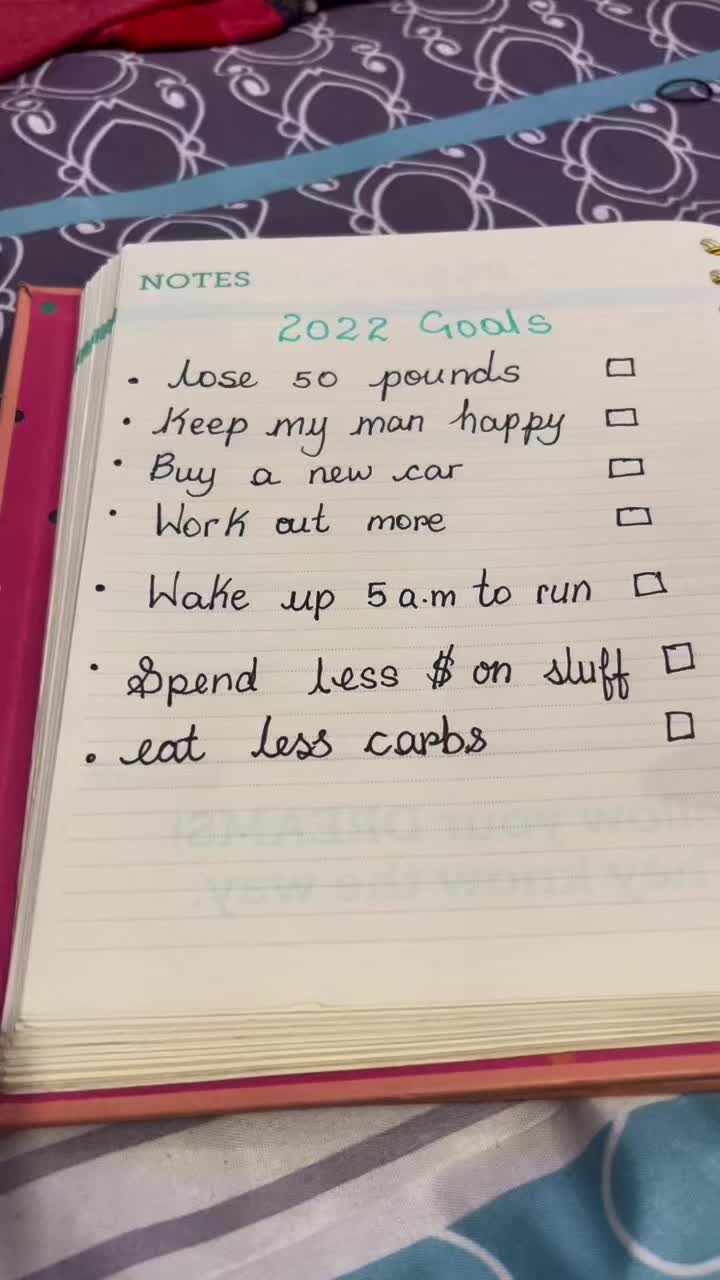 NOTES
2022 Goals
• lose 50 pounds
• Keep my man happy
• Buy a new car
• Work out more
• Wake up 5 a.m to run
• Spend less $ on stuff
• eat less carbs
your DREAMS!
They know the way.